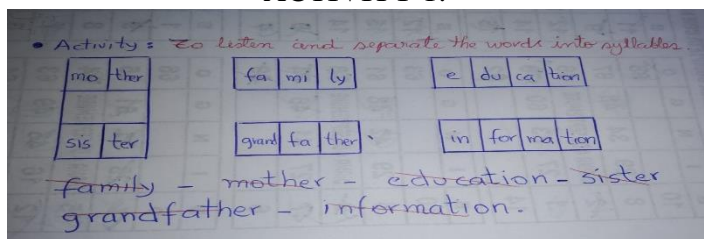 • Activity : To listen and separate the words into syllables.
mo ther fa mi ly e du ca tion
sis ter grand fa ther . in for ma tion
family - mother - education - sister
grandfather - information.